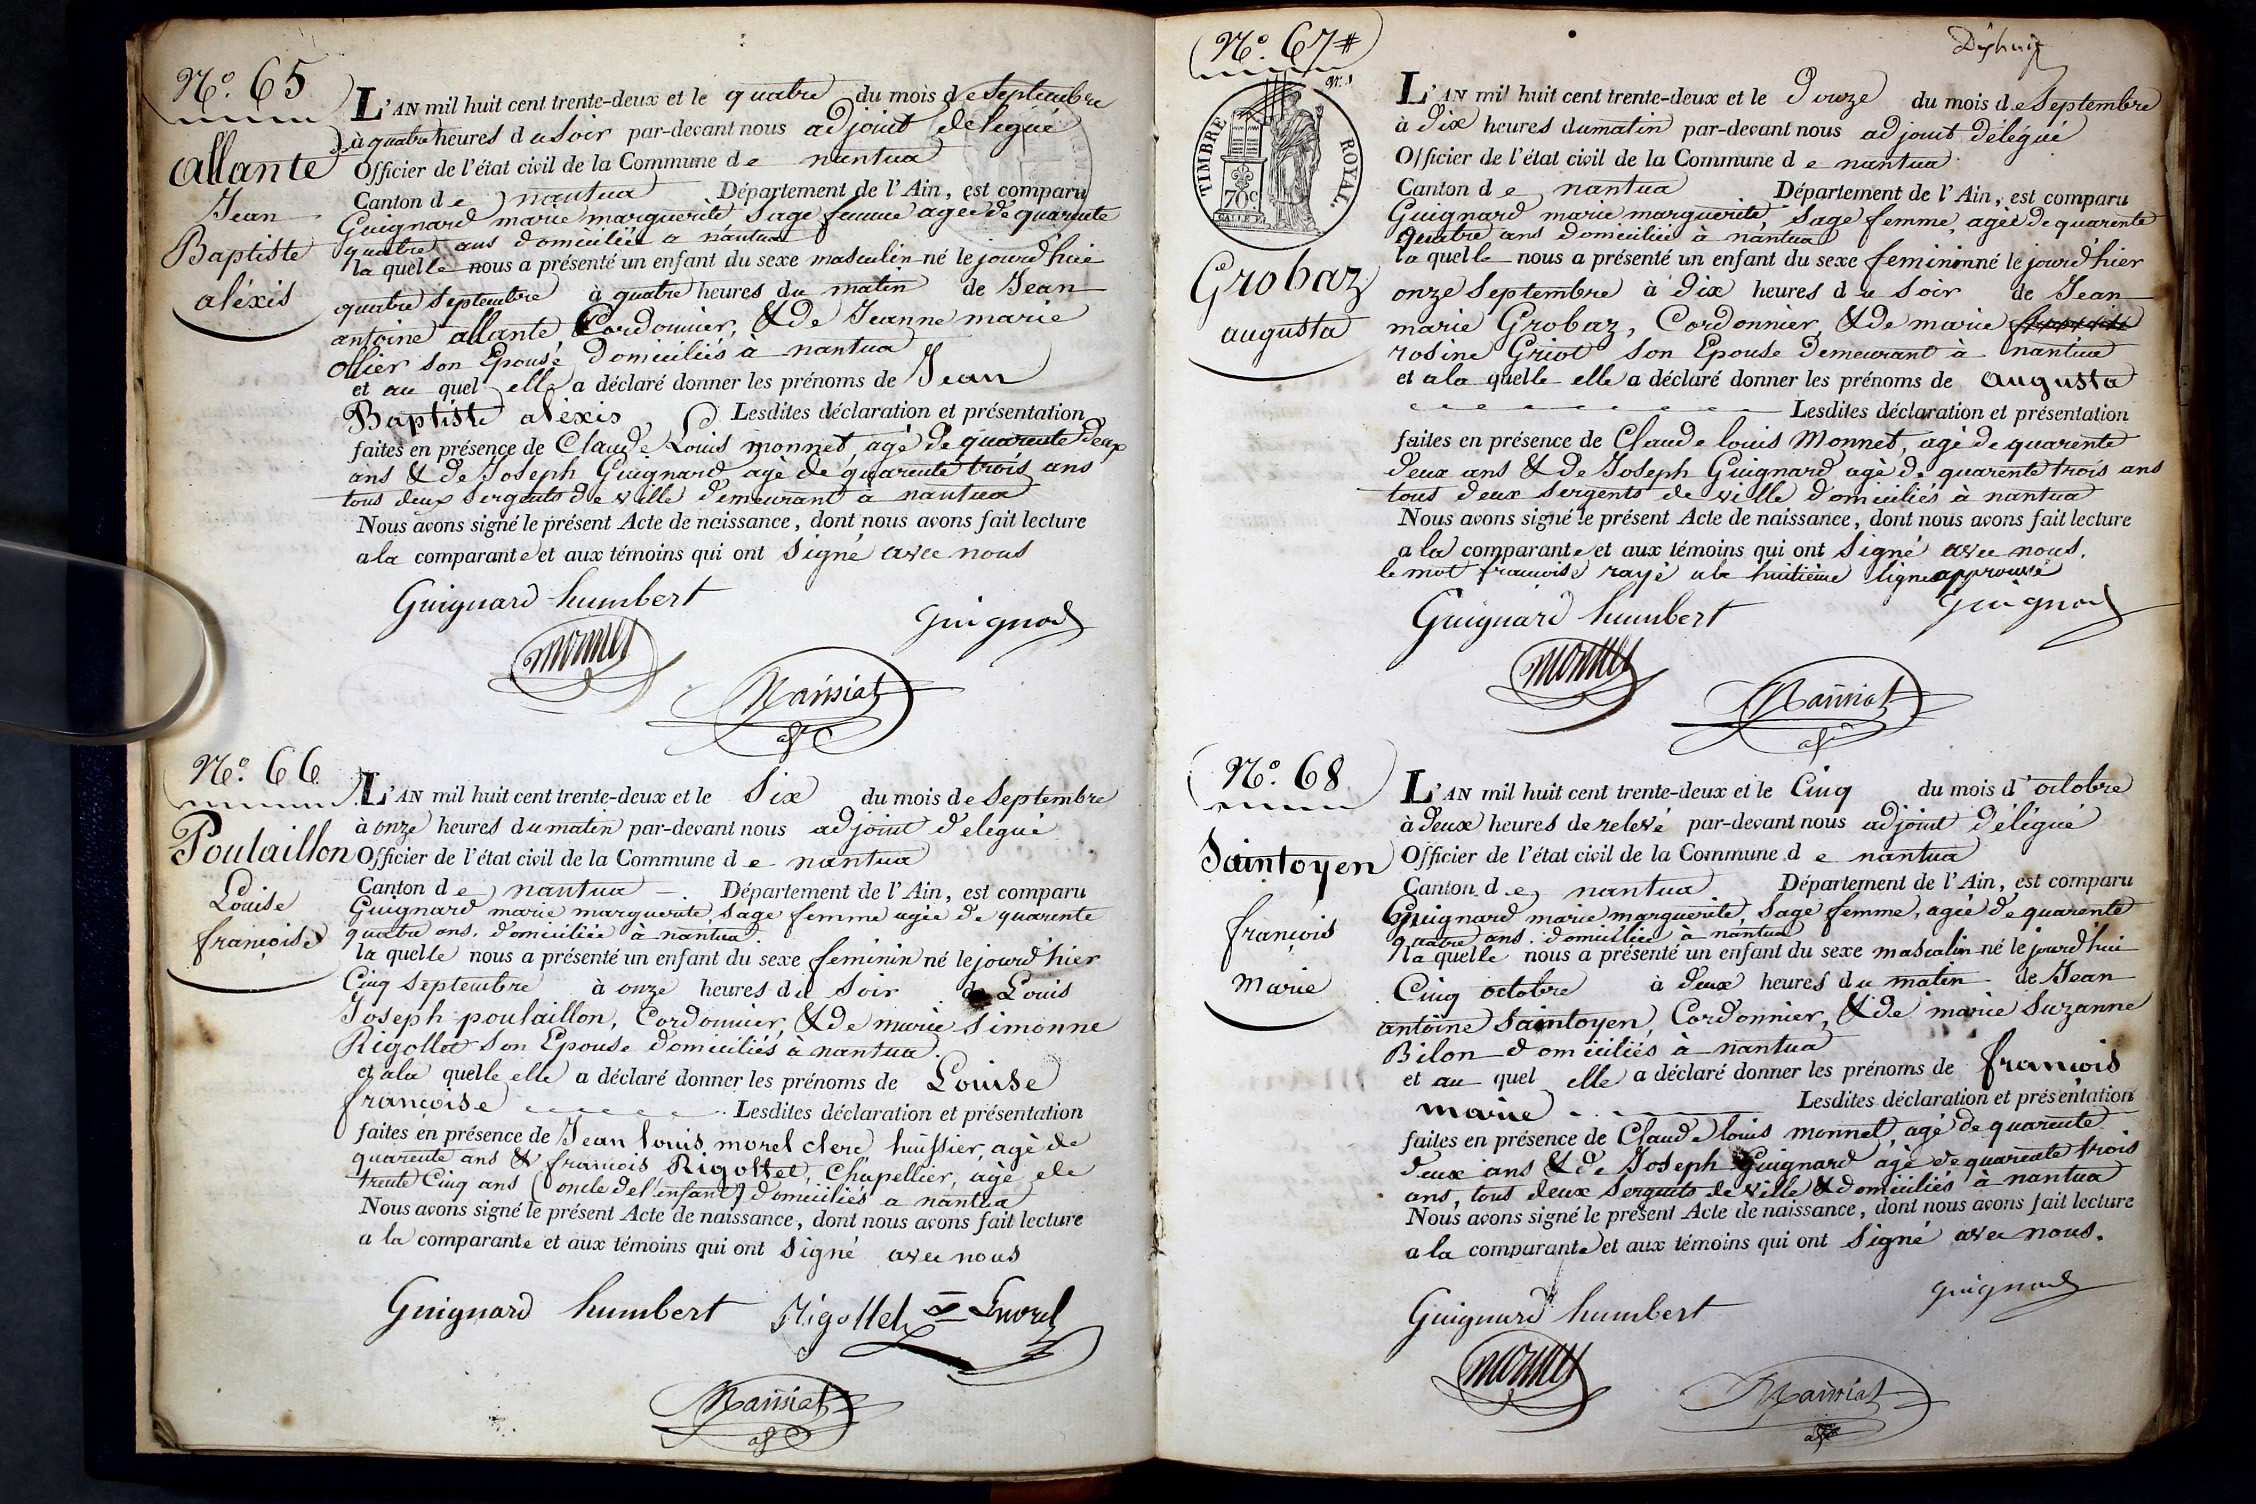 N.º 65
allante
Jean
Baptiste
aléxis
L'AN mil huit cent trente-deux et le quatre du mois de Septembre
à quatre heures du Soir par-devant nous adjoint délégué
Officier de l'état civil de la Commune de nantua
Canton de nantua Département de l'Ain, est comparu
Guignard marie marguerite Sage femme agée de quarente
quatre ans domiciliée a nantua
la quelle nous a présenté un enfant du sexe masculin né le jourd'hui
quatre Septembre à quatre heures du matin de Jean
antoine allante, Cordonnier, & de Jeanne marie
Ollier son Epouse domiciliés à nantua
et au quel elle a déclaré donner les prénoms de Jean
Baptiste aléxis Lesdites déclaration et présentation
faites en présence de Claude Louis monnet, agé de quarente deux
ans & de Joseph Guignard agé de quarente trois ans
tous deux Sergents de ville demeurant à nantua
Nous avons signé le présent Acte de naissance, dont nous avons fait lecture
a la comparante et aux témoins qui ont Signé avec nous
Guignard humbert
Guignard
monnet
N.º 66
Poulaillon
Louise
françoise
L'AN mil huit cent trente-deux et le Six du mois de Septembre
à onze heures du matin par-devant nous adjoint délégué
Officier de l'état civil de la Commune de nantua
Canton de nantua Département de l'Ain, est comparu
Guignard marie marguerite, Sage femme agée de quarente
quatre ans, domiciliée à nantua.
la quelle nous a présenté un enfant du sexe feminin né le jourd'hier
Cinq Septembre à onze heures du Soir de Louis
Joseph poulaillon, Cordonnier, & de marie Simonne
Rigollet Son Epouse domiciliés à nantua.
et a la quelle elle a déclaré donner les prénoms de Louise
françoise Lesdites déclaration et présentation
faites en présence de Jean louis morel clerc huissier, agé de
quarente ans & francois Rigollet, Chapellier, agé de
trente Cinq ans (oncle de l'enfant) domiciliés a nantua
Nous avons signé le présent Acte de naissance, dont nous avons fait lecture
a la comparante et aux témoins qui ont Signé avec nous
Guignard humbert Rigollet Lmorel
N.º 67
TIMBRE ROYAL.
70c
Grobaz
augusta
L'AN mil huit cent trente-deux et le Douze du mois de Septembre
à Dix heures du matin par-devant nous adjoint délégué
Officier de l'état civil de la Commune de nantua
Canton de nantua Département de l'Ain, est comparu
Guignard marie marguerite, Sage femme, agée de quarente
quatre ans domiciliée à nantua
la quelle nous a présenté un enfant du sexe feminin né le jourd'hier
onze Septembre à Dix heures du Soir de Jean
marie Grobaz, Cordonnier, & de marie
rosine Griot Son Epouse demeurant à nantua
et a la quelle elle a déclaré donner les prénoms de augusta
Lesdites déclaration et présentation
faites en présence de Claude louis Monnet, agé de quarente
deux ans & de Joseph Guignard agé de quarente trois ans
tous deux Sergents de ville domiciliés à nantua
Nous avons signé le présent Acte de naissance, dont nous avons fait lecture
a la comparante et aux témoins qui ont Signé avec nous.
le mot francoise rayé a la huitième ligne approuvé
Guignard humbert
Guignard
monnet
N.º 68
Saintoyen
françois
marie
L'AN mil huit cent trente-deux et le Cinq du mois d'octobre
à deux heures de relevé par-devant nous adjoint délégué
Officier de l'état civil de la Commune de nantua
Canton de nantua Département de l'Ain, est comparu
Guignard marie marguerite, Sage femme, agée de quarente
quatre ans, domiciliée à nantua
la quelle nous a présenté un enfant du sexe masculin né le jourd'hui
Cinq octobre à deux heures du matin de Jean
antoine Saintoyen, Cordonnier, & de marie Suzanne
Bilon domiciliés à nantua
et au quel elle a déclaré donner les prénoms de françois
marie Lesdites déclaration et présentation
faites en présence de Claude louis monnet, agé de quarente
deux ans & de Joseph Guignard agé de quarente trois
ans, tous deux Sergents de ville & domiciliés à nantua
Nous avons signé le présent Acte de naissance, dont nous avons fait lecture
a la comparante et aux témoins qui ont Signé avec nous.
Guignard humbert
Guignard
monnet